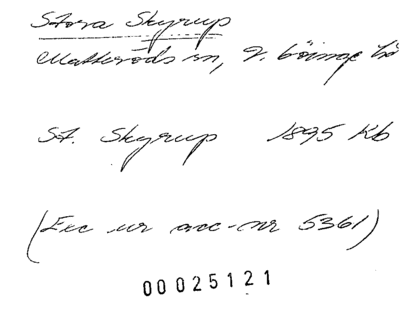 Stora Skyrup
Matteröds sn, V. Göinge hd
St. Skyrup 1895 Kb
(Exc ur acc-nr 5361)
00025121